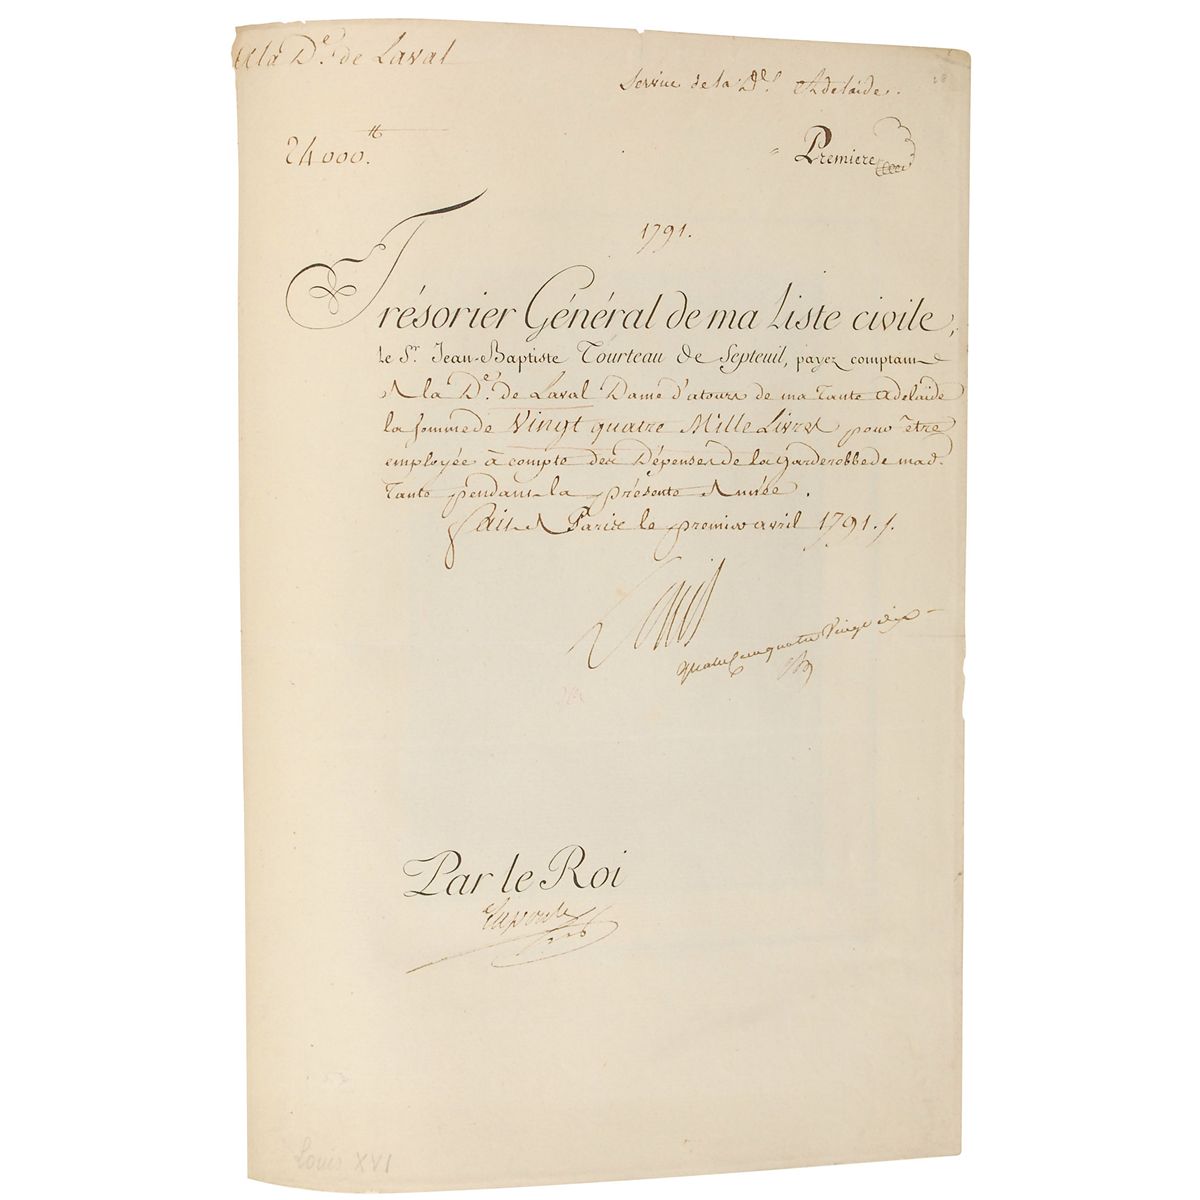 A la De. de Laval
Service de la De. Adelaide.
24000.tt
Premiere
1791.
Trésorier Général de ma Liste civile,
le Sr. Jean-Baptiste Tourteau de Septeuil, payez comptant
A la De. de Laval Dame d'atours de ma Tante Adelaide
la somme de Vingt quatre Mille Livres pour être
employée à compte des Dépenses de la Garderobbe de mad.
Tante pendant la présente Année.
Fait A Paris le premier avril 1791./.
Louis
quatre Vingt dix
Par le Roi
Laporte
Louis XVI